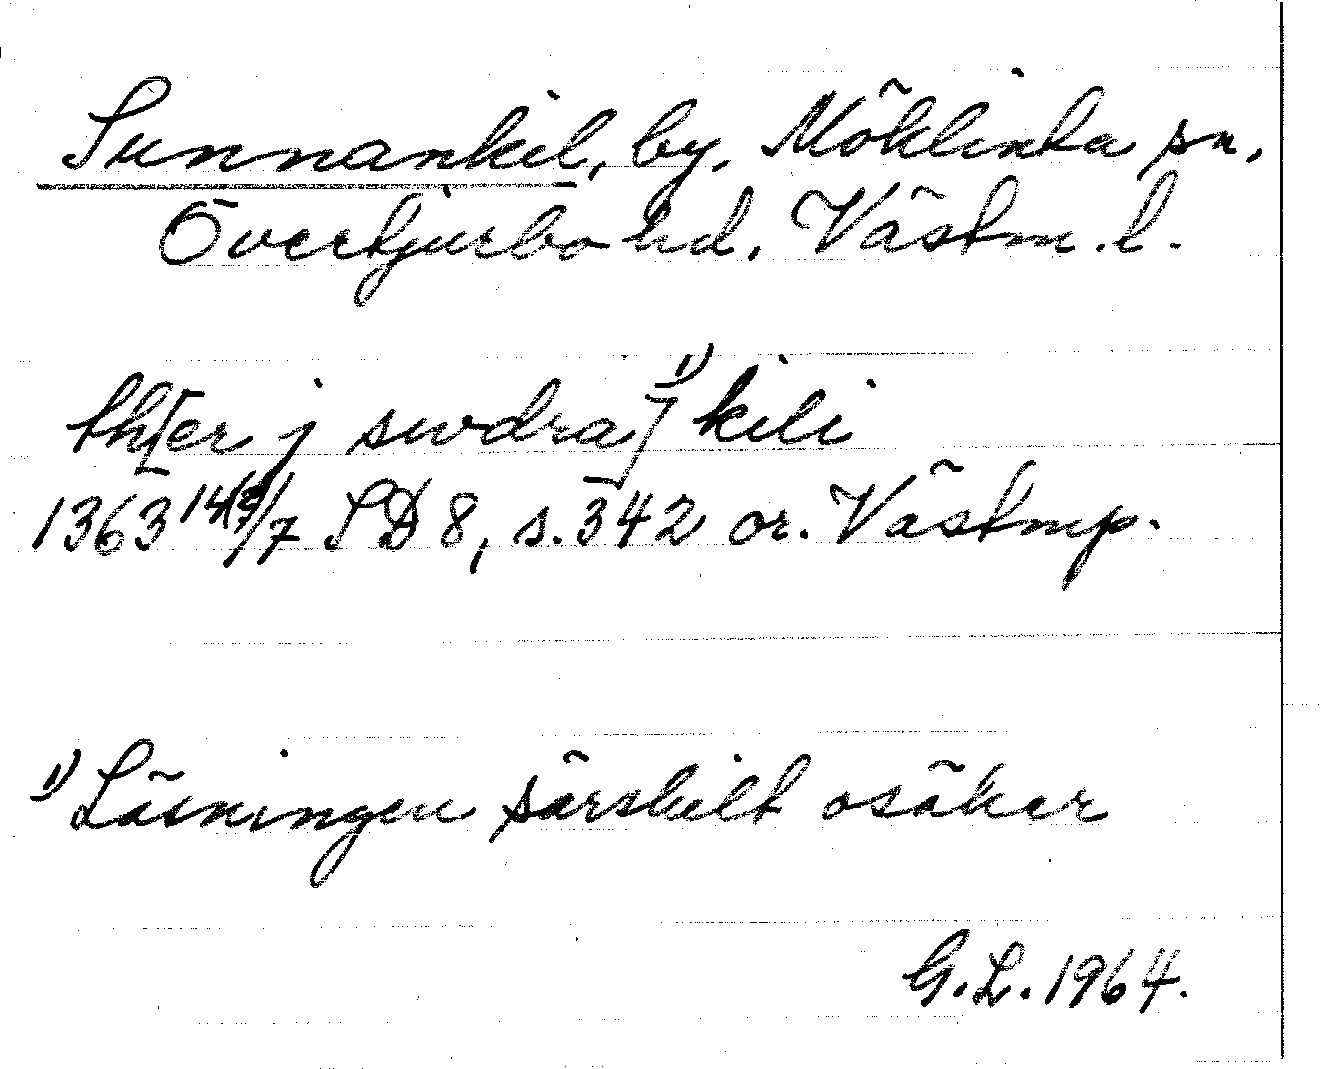 Sunnankil, by, Möklinta sn,
Övertjurbo hd, Västm. l.
th[er j swdra]¹⁾ kili
1363 14(?)/7 SD 8, s. 342 or. Västmp.
¹⁾ Läsningen särskilt osäker
G.L. 1964.